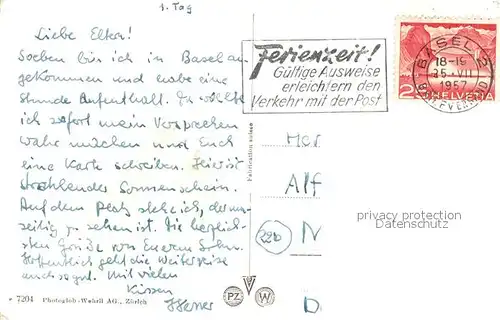 1. Tag
Liebe Eltern!
Soeben bin ich in Basel an-
gekommen und habe eine
Stunde Aufenthalt. Da wollte
ich sofort mein Versprechen
wahr machen und Euch
eine Karte schreiben. Hier ist
strahlender Sonnenschein.
Auf dem Platz stehe ich, der
zu sehen ist. Die herzlich-
sten Grüße von Eurem Sohn.
Hoffentlich geht die Weiterreise
auch so gut. Mit vielen
Küssen
7204 Photoglob-Wehrli AG., Zürich
Fabrication suisse
PZ W
Ferienzeit!
Gültige Ausweise
erleichtern den
Verkehr mit der Post
BASEL 2
18-19
25.VII.
1957
BRIEFVERSAND
HELVETIA
Her
Alf
22b N
D
privacy protection
Datenschutz